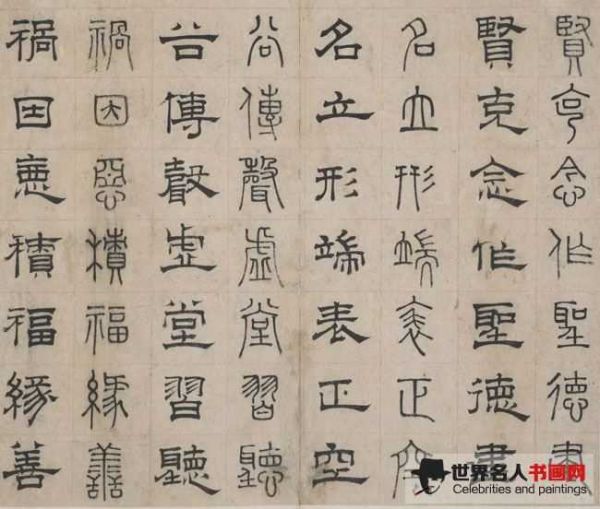 賢克念作聖德建
賢克念作聖德建
名立形端表正空
名立形端表正空
谷傳聲虛堂習聽
谷傳聲虛堂習聽
禍因惡積福緣善
禍因惡積福緣善
世界名人书画网
Celebrities and paintings